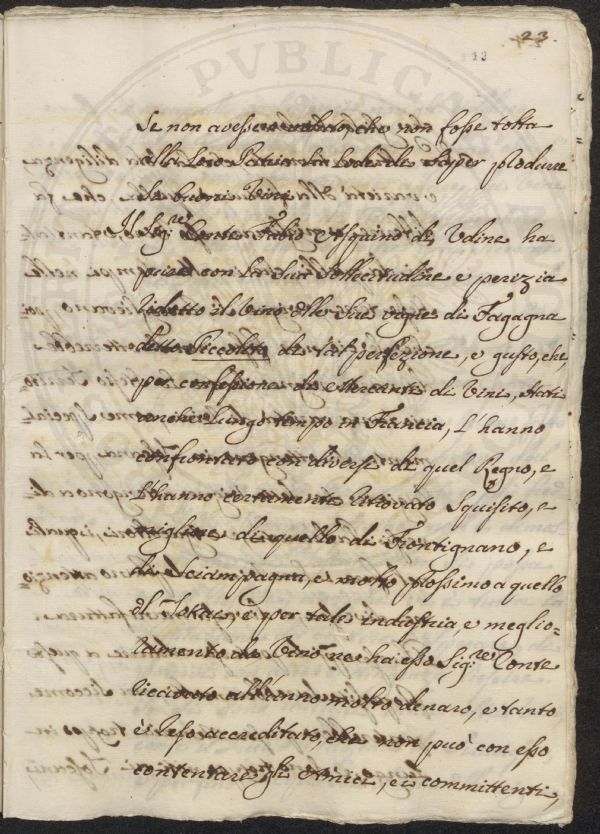 23.
13
Se non avesse veduto, che non fosse tolta
alla Loro Patria la lode de saper produrre
de buoni Vini.
Il Sig.r Conte Fabio Asquino di Udine ha
pure con la Sua Sollecitudine e perizia
ridotto il Vino delle Sue vigne di Fagagna
detto Piccolito di tal perfezione, e gusto, che,
per confessione de Mercanti di Vini, stati
anche lungo tempo in Francia, L'hanno
confrontato con diversi di quel Regno, e
l'hanno certamente ritrovato Squisito, e
migliore di quello di Frontignano, e
di Sciampagna, e molto prossimo a quello
del Tokai, e per tale industria, e meglio-
ramento de Vino ne ha esso Sig.r Conte
ricavato all'anno molto denaro, e tanto
è reso accreditato, che non può con esso
contentare gli Amici, e i committenti,